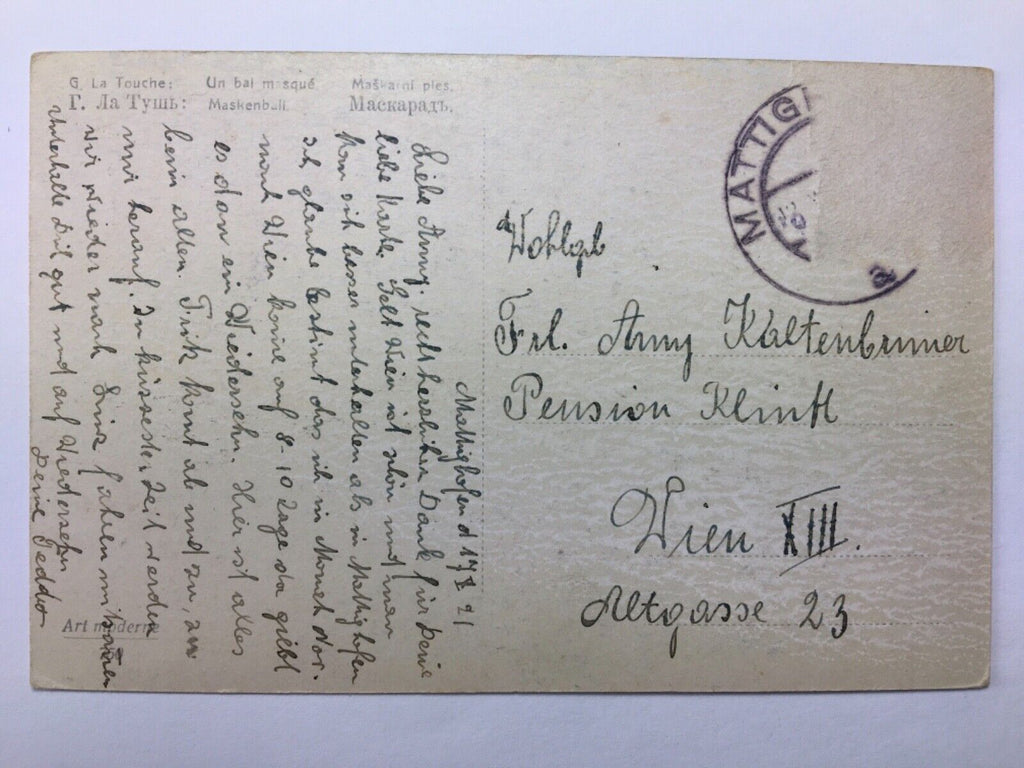 G. La Touche: Un bal masqué. Maškarní ples.
Г. Ла Тушъ: Maskenball. Маскарадъ.
Mattighofen d 17 21
Liebe Anny, recht herzlichen Dank für Deine
liebe Karte. Gelt Wien ist schön und man
kan sich besser unterhalten als in Mattighofen
ich glaube bestimt das ich im Monat
nach Wien kome auf 8-10 Tage da giebt
es dan ein Wiedersehn. Hier ist alles
beim alten. Fritz komt ab und zu, zu
mir herauf. In kürzester Zeit werden
wir wieder nach Linz fahren
Unterhalte Dich gut und auf Wiedersehn
Deine
Art moderne
MATTIGH
a
Wohlgb
Frl. Anny Kaltenbrunner
Pension
Wien XIII.
Altgasse 23